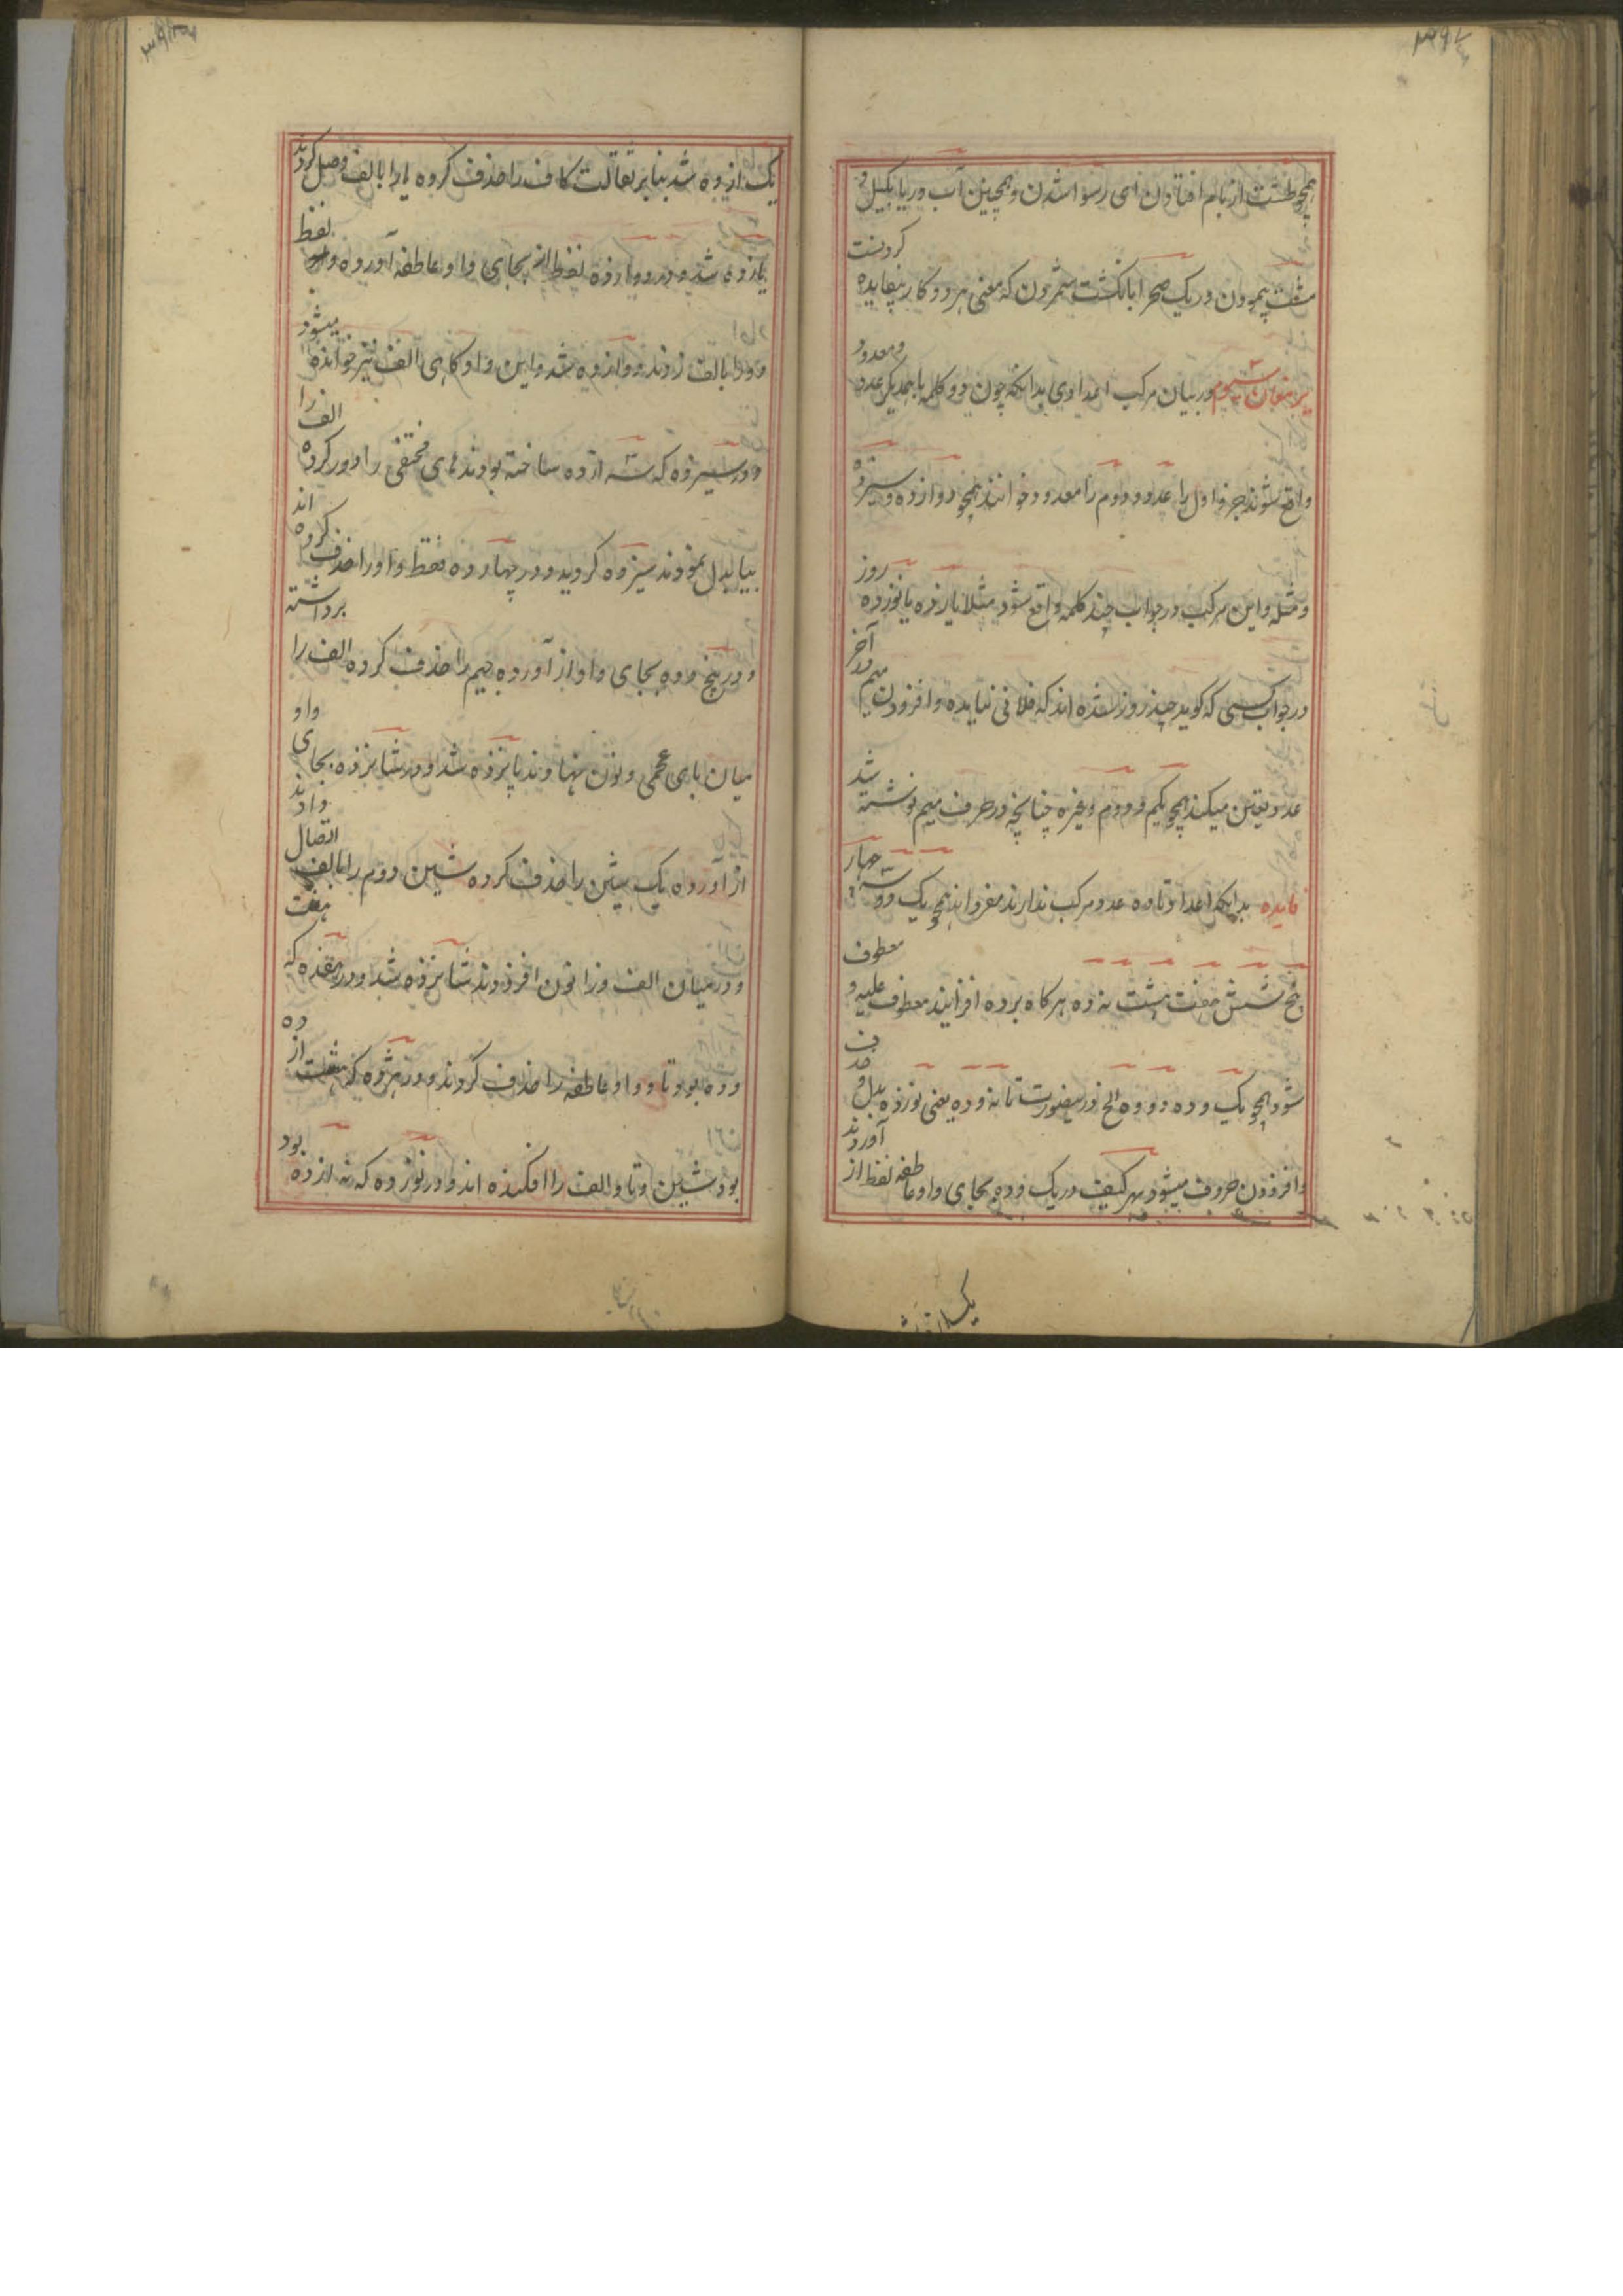 همچو طشت از بام افتادن ای رسوا شدن و همچنین آب دریا بکیل و
مشت پیمودن و ریک صحرا بانکشت شمردن که معنی هر دو کار بیفایده کردنست
در بیان مرکب اعدادی بدانکه چون دو کلمه با همدیکر عدد و معدود
واقع شوند جزو اول را عدد و دوم را معدود خوانند همچو دوازده و سیزده
و مثله و این مرکب در جواب چند کلمه واقع شود مثلا یازده یا نوزده روز
در جواب کسی که کوید چند روز شده اند که فلانی نیامده و افزودن میم در آخر
عدد تعین میکند همچو یکم و دوم و غیره چنانچه در حرف میم نوشته شد
فایده بدانکه اعداد تا ده عدد مرکب ندارند مفرد اند همچو یک دو سه چهار
پنج شش هفت هشت نه ده هرکاه برده افزایند معطوف علیه و معطوف
شود همچو یک و ده دو و ده الخ درینصورت تا نه و ده یعنی نوزده بدل و حذف
و افزودن حروف میشود بهر کیف در یک و ده بجای واو عاطفه لفظ از آوردند
یک از ده شد بنابر ثقالت کاف را حذف کرده یا را بالف وصل کردند
یازده شد و در دوازده لفظ از بجای واو عاطفه آورده لفظ
دو را بالف زدند دوازده شد و این واو کاهی الف نیز خوانده میشود
و در سیزده که سه از ده ساخته بودند های مختفی را دور کرده الف را
بیا بدل نمودند سیزده کردید و در چهارده فقط واو را حذف کرده اند
و در پنج و ده بجای واو از آورده جیم را حذف کرده الف را برداشته
میان بای عجمی و نون نهادند پانزده شد و در شانزده بجای واو
از آورده یک شین را حذف کرده شین دوم را بالف اتصال دادند
و در میان الف و زا نون افزودند شانزده شد و در هفده که هفت
و ده بود تا و واو عاطفه را حذف کردند و در هژده که هشت از ده
بود شین و تا و الف را افکنده اند و در نوزده که نه از ده بود